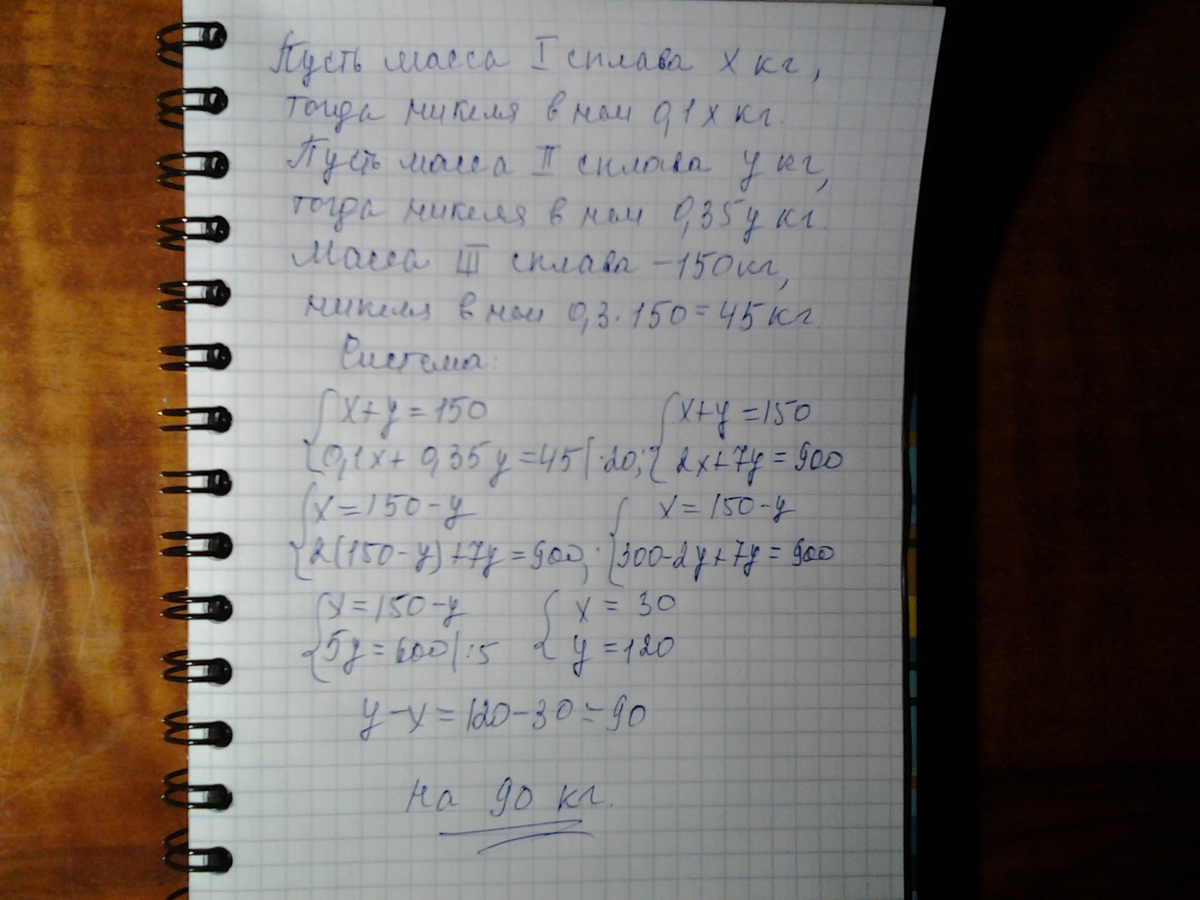 Пусть масса I сплава x кг,
тогда никеля в нем 0,1x кг.
Пусть масса II сплава y кг,
тогда никеля в нем 0,35y кг.
Масса III сплава - 150кг,
никеля в нем 0,3·150=45кг.
Система:
{x+y=150 {x+y=150
{0,1x+0,35y=45|·20; {2x+7y=900
{x=150-y {x=150-y
{2(150-y)+7y=900; {300-2y+7y=900
{x=150-y {x=30
{5y=600|:5 {y=120
y-x=120-30=90
на 90 кг.